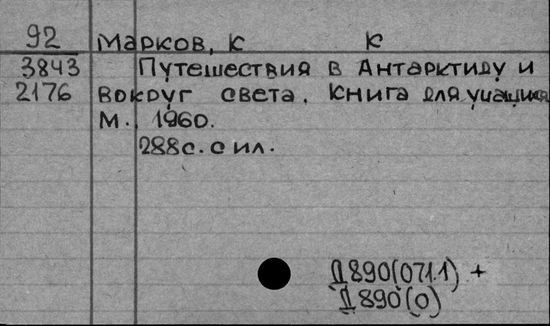 92 Марков, К К
3843 Путешествия в Антарктиду и
2176 вокруг света. Книга для учащихся
М., 1960.
288с. с ил.
Д890(071.1) +
Д890(0)